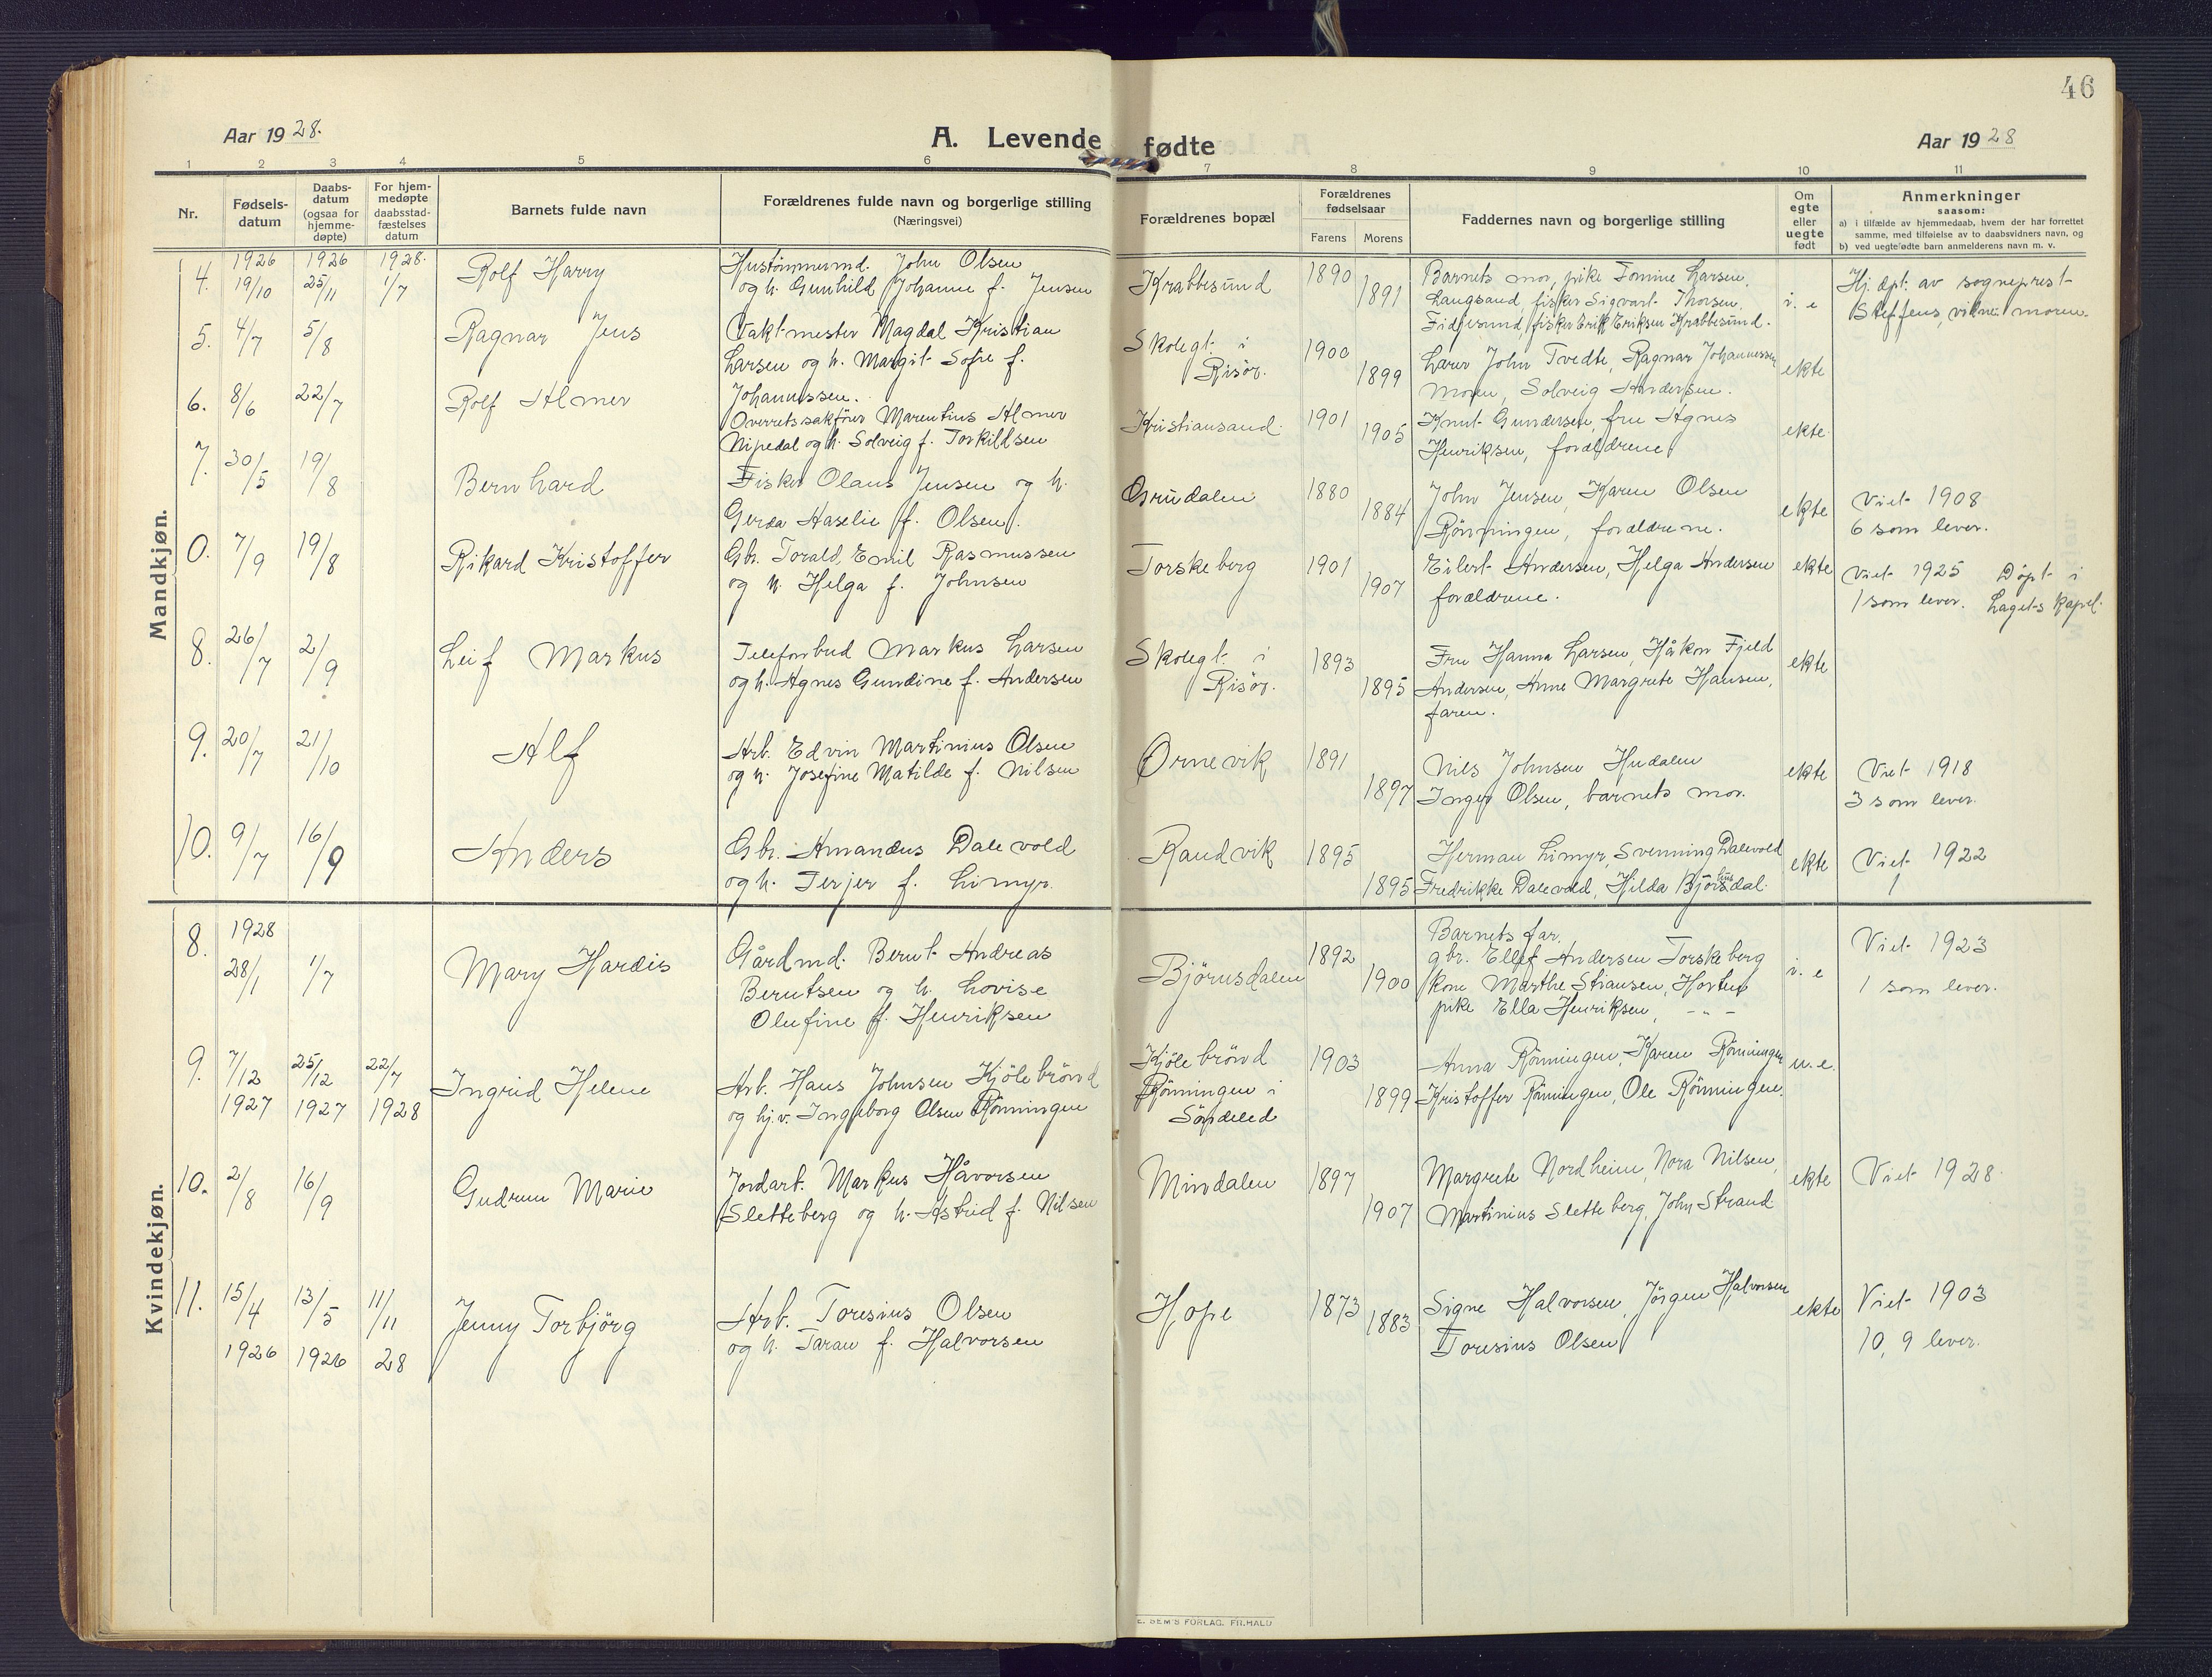 46
Aar 1928.
A. Levende fødte
Aar 1928
1 2 3 4 5 6 7 8 9 10 11
Nr.
Fødsels-
datum
Daabs-
datum
(ogsaa for
hjemme-
døpte)
For hjem-
medøpte
daabsstad-
fæstelses
datum
Barnets fulde navn
Forældrenes fulde navn og borgerlige stilling
(Næringsvei)
Forældrenes bopæl
Forældrenes
fødselsaar
Farens Morens
Faddernes navn og borgerlige stilling
Om
egte
eller
uegte
født
Anmerkninger
saasom:
a) i tilfælde av hjemmedaab, hvem der har forrettet
samme, med tilføielse av to daabsvidners navn, og
b) ved uegtefødte barn anmelderens navn m. v.
Mandkjøn.
4. 1926 19/10 1926 25/11 1928. 1/7
Rolf Harry
John Olsen
og h. Gunhild Johanne f. Jensen
Krabbesund
1890 1891
Barnets mor, pike Tomine Larsen,
Langsand, fisker Sigvart Thorsen,
Fidjesund, fisker Erik Eriksen Krabbesund.
i. e
Hj. dpt. av sogneprest
Steffens, vitne: moren.
5. 4/7 5/8
Ragnar Jens
Vaktmester Magdal Kristian
Larsen og h. Margit Sofie f.
Johannessen.
Skolegt. i
Risør.
1900 1899
Lærer John Tvedte, Ragnar Johannessen
Moren, Solveig Andersen.
ekte
6. 8/6 22/7
Rolf Almer
Overretssakfører Marentius Almer
Nipedal og h. Solveig f. Torkildsen
Kristiansand.
1901 1905
Knut Gundersen, fru Agnes
Henriksen, forældrene
ekte
7. 30/5 19/8
Bernhard
Fisker Olaus Jensen og h.
Gerda Haselie f. Olsen.
Grudalen
1880 1884
John Jensen, Karen Olsen
Rönningen, forældrene.
ekte
Viet 1908
6 som lever.
0. 7/9 19/8
Rikard Kristoffer
Gbr. Torald Emil Rasmussen
og h. Helga f. Johnsen
Torskeberg
1901 1907
Eilert Andersen, Helga Andersen
forældrene.
ekte
Viet 1925 Døpt i
1 som lever. Lagets kapel.
8. 26/7 2/9
Leif Markus
Telefonbud Markus Larsen
og h. Agnes Gundine f. Andersen
Skolegt. i
Risør.
1893 1895
Fru Hanna Larsen, Håkon Fjeld
Andersen, Anne Margrete Hansen,
faren.
ekte
9. 20/7 21/10
Alf
Arb. Edvin Martinius Olsen
og h. Josefine Matilde f. Nilsen
Ørnevik
1891 1897
Nils Johnsen Hudalen
Inger Olsen, barnets mor.
ekte
Viet 1918
3 som lever.
10. 9/7 16/9
Anders
Gbr. Amandus Dalevold
og h. Terjer f. Limyr.
Randvik
1895 1895
Herman Limyr, Svenning Dalevold
Fredrikke Dalevold, Hilda
ekte
Viet 1922
1
Kvindekjøn.
8. 1928 28/1 1/7
Mary Hardis
Gårdmd. Bernt Andreas
Berntsen og h. Lovise
Olufine f. Henriksen
Björnsdalen
1892 1900
Barnets far.
gbr. Ellef Andersen Torskeberg
kone Marthe Stiansen, Horten
pike Ella Henriksen, - " -
i. e
Viet 1923
1 som lever.
9. 7/12 1927 25/12 1927 22/7 1928
Ingrid Helene
Arb. Hans Johnsen Kjölebrönd
og hj.v. Ingeborg Olsen Rönningen
Kjölebrönd
Rönningen i
Söndeled
1903 1899
Anna Rönningen, Karen Rönningen
Kristoffer Rönningen, Ole Rönningen.
u. e.
10. 2/8 16/9
Gudrun Marie
Jordarb. Markus Håvorsen
Sletteberg og h. Astrid f. Nilsen
Mindalen
1897 1907
Margrete Nordheim, Nora Nilsen,
Martinius Sletteberg, John Strand
ekte
Viet 1928.
11. 15/4 1926 13/5 1926 11/11 28
Jenny Torbjørg
Arb. Toresius Olsen
og h. Taran f. Halvorsen
Hope
1873 1883
Signe Halvorsen, Jörgen Halvorsen
Toresius Olsen
ekte
Viet 1903
10, 9 lever.